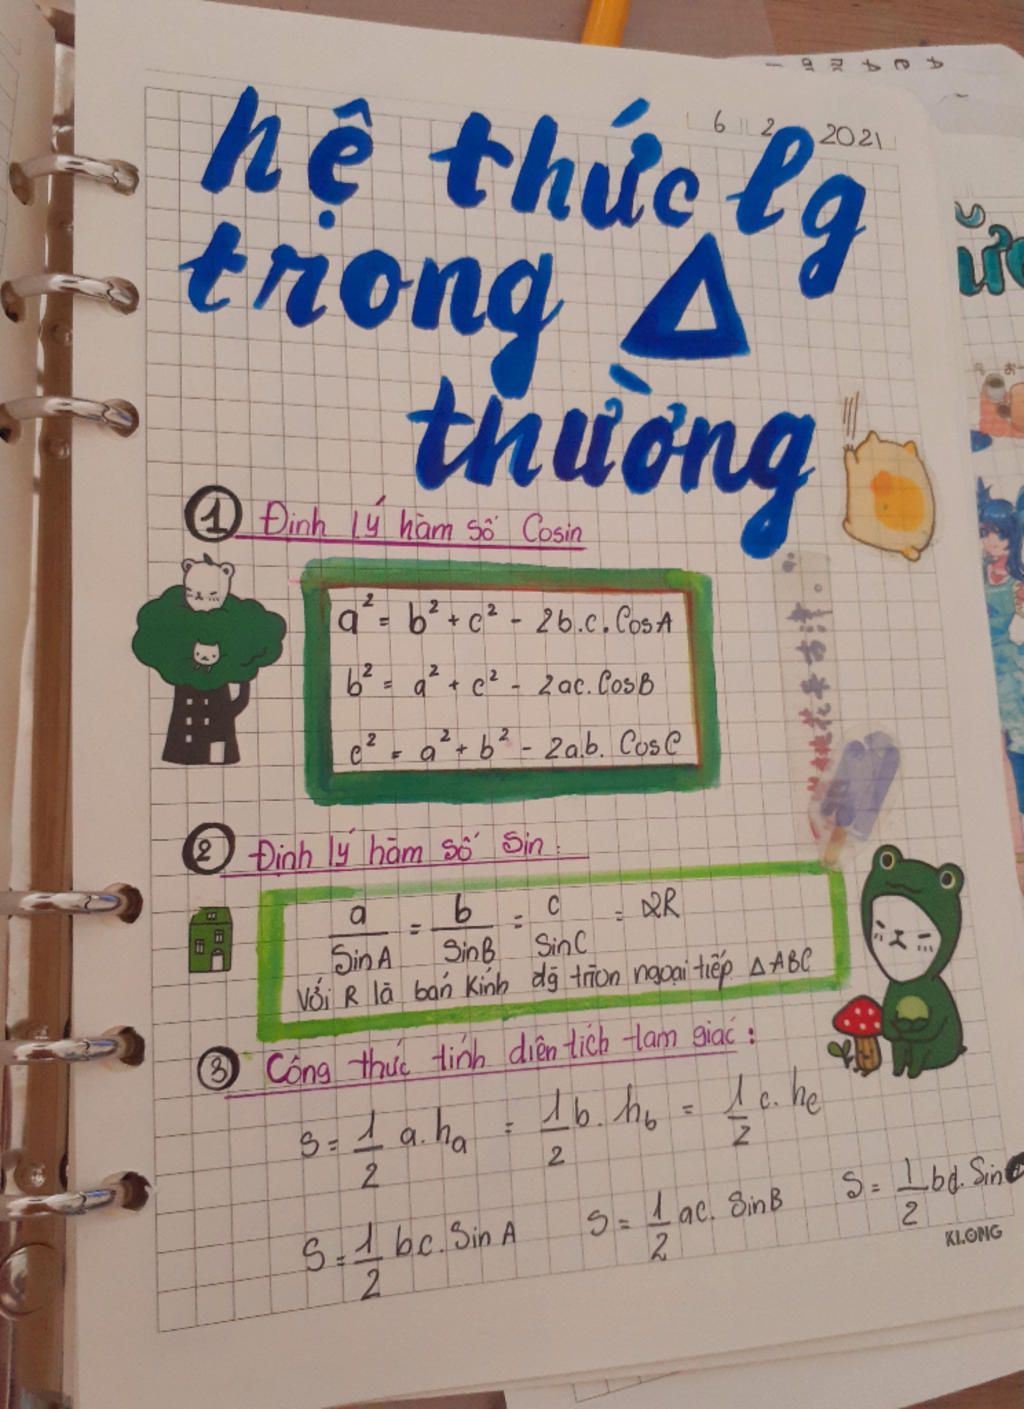 6 2 2021
hệ thức lg
trong Δ
thường
1 Định lý hàm số Cosin
a² = b² + c² - 2b.c.CosA
b² = a² + c² - 2ac.CosB
c² = a² + b² - 2a.b. CosC
2 Định lý hàm số Sin :
a/SinA = b/SinB = c/SinC = 2R
Với R là bán kính đg tròn ngoại tiếp Δ ABC
3 Công thức tính diện tích tam giác :
S = 1/2 a.hₐ = 1/2 b.h_b = 1/2 c.h_c
S = 1/2 bc.SinA S = 1/2 ac.SinB S = 1/2 bc.Sin
KLONG